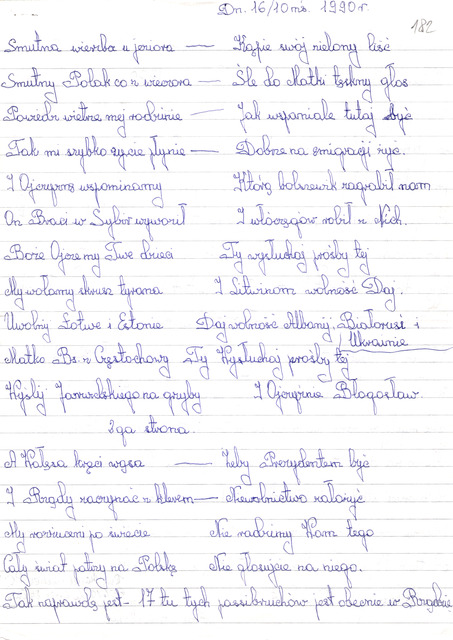 Dn. 16/10 ms. 1990 r.
182
Smutna wierzba u jeziora — Kąpie swój zielony liść
Smutny Polak co z wieczora — Śle do Matki tęskny głos
Powiedz wietrze mej rodzinie — Jak wspaniale tutaj być
Jak mi szybko życie płynie — Dobrze na emigracji żyć.
I Ojczyznę wspominamy Którą bolszewik zagrabił nam
On Braci w Sybir wywoził I włóczęgów robił z Nich.
Boże Ojcze my Twe dzieci Ty wysłuchaj prośby tej
My wołamy skrusz tyrana I Litwinom wolność Daj.
Uwolnij Łotwę i Estonie Daj wolność Albanij, Białorusi i
Ukrainie
Matko Bs. z Częstochowy Ty Wysłuchaj prośby tej
Wyślij Jaruzelskiego na grzyby I Ojczyźnie Błogosław.
3ga strona.
A Wałęsa kręci wąsa — Żeby Prezydentem być
I Rządy zaczynać z klerem — Niewolnictwo założyć
My rozrzuceni po świecie Nie radzimy Wam tego
Cały świat patrzy na Polskę Nie głosujcie na niego.
Tak naprawdę jest - 17 tu tych jest obecnie w Rządzie